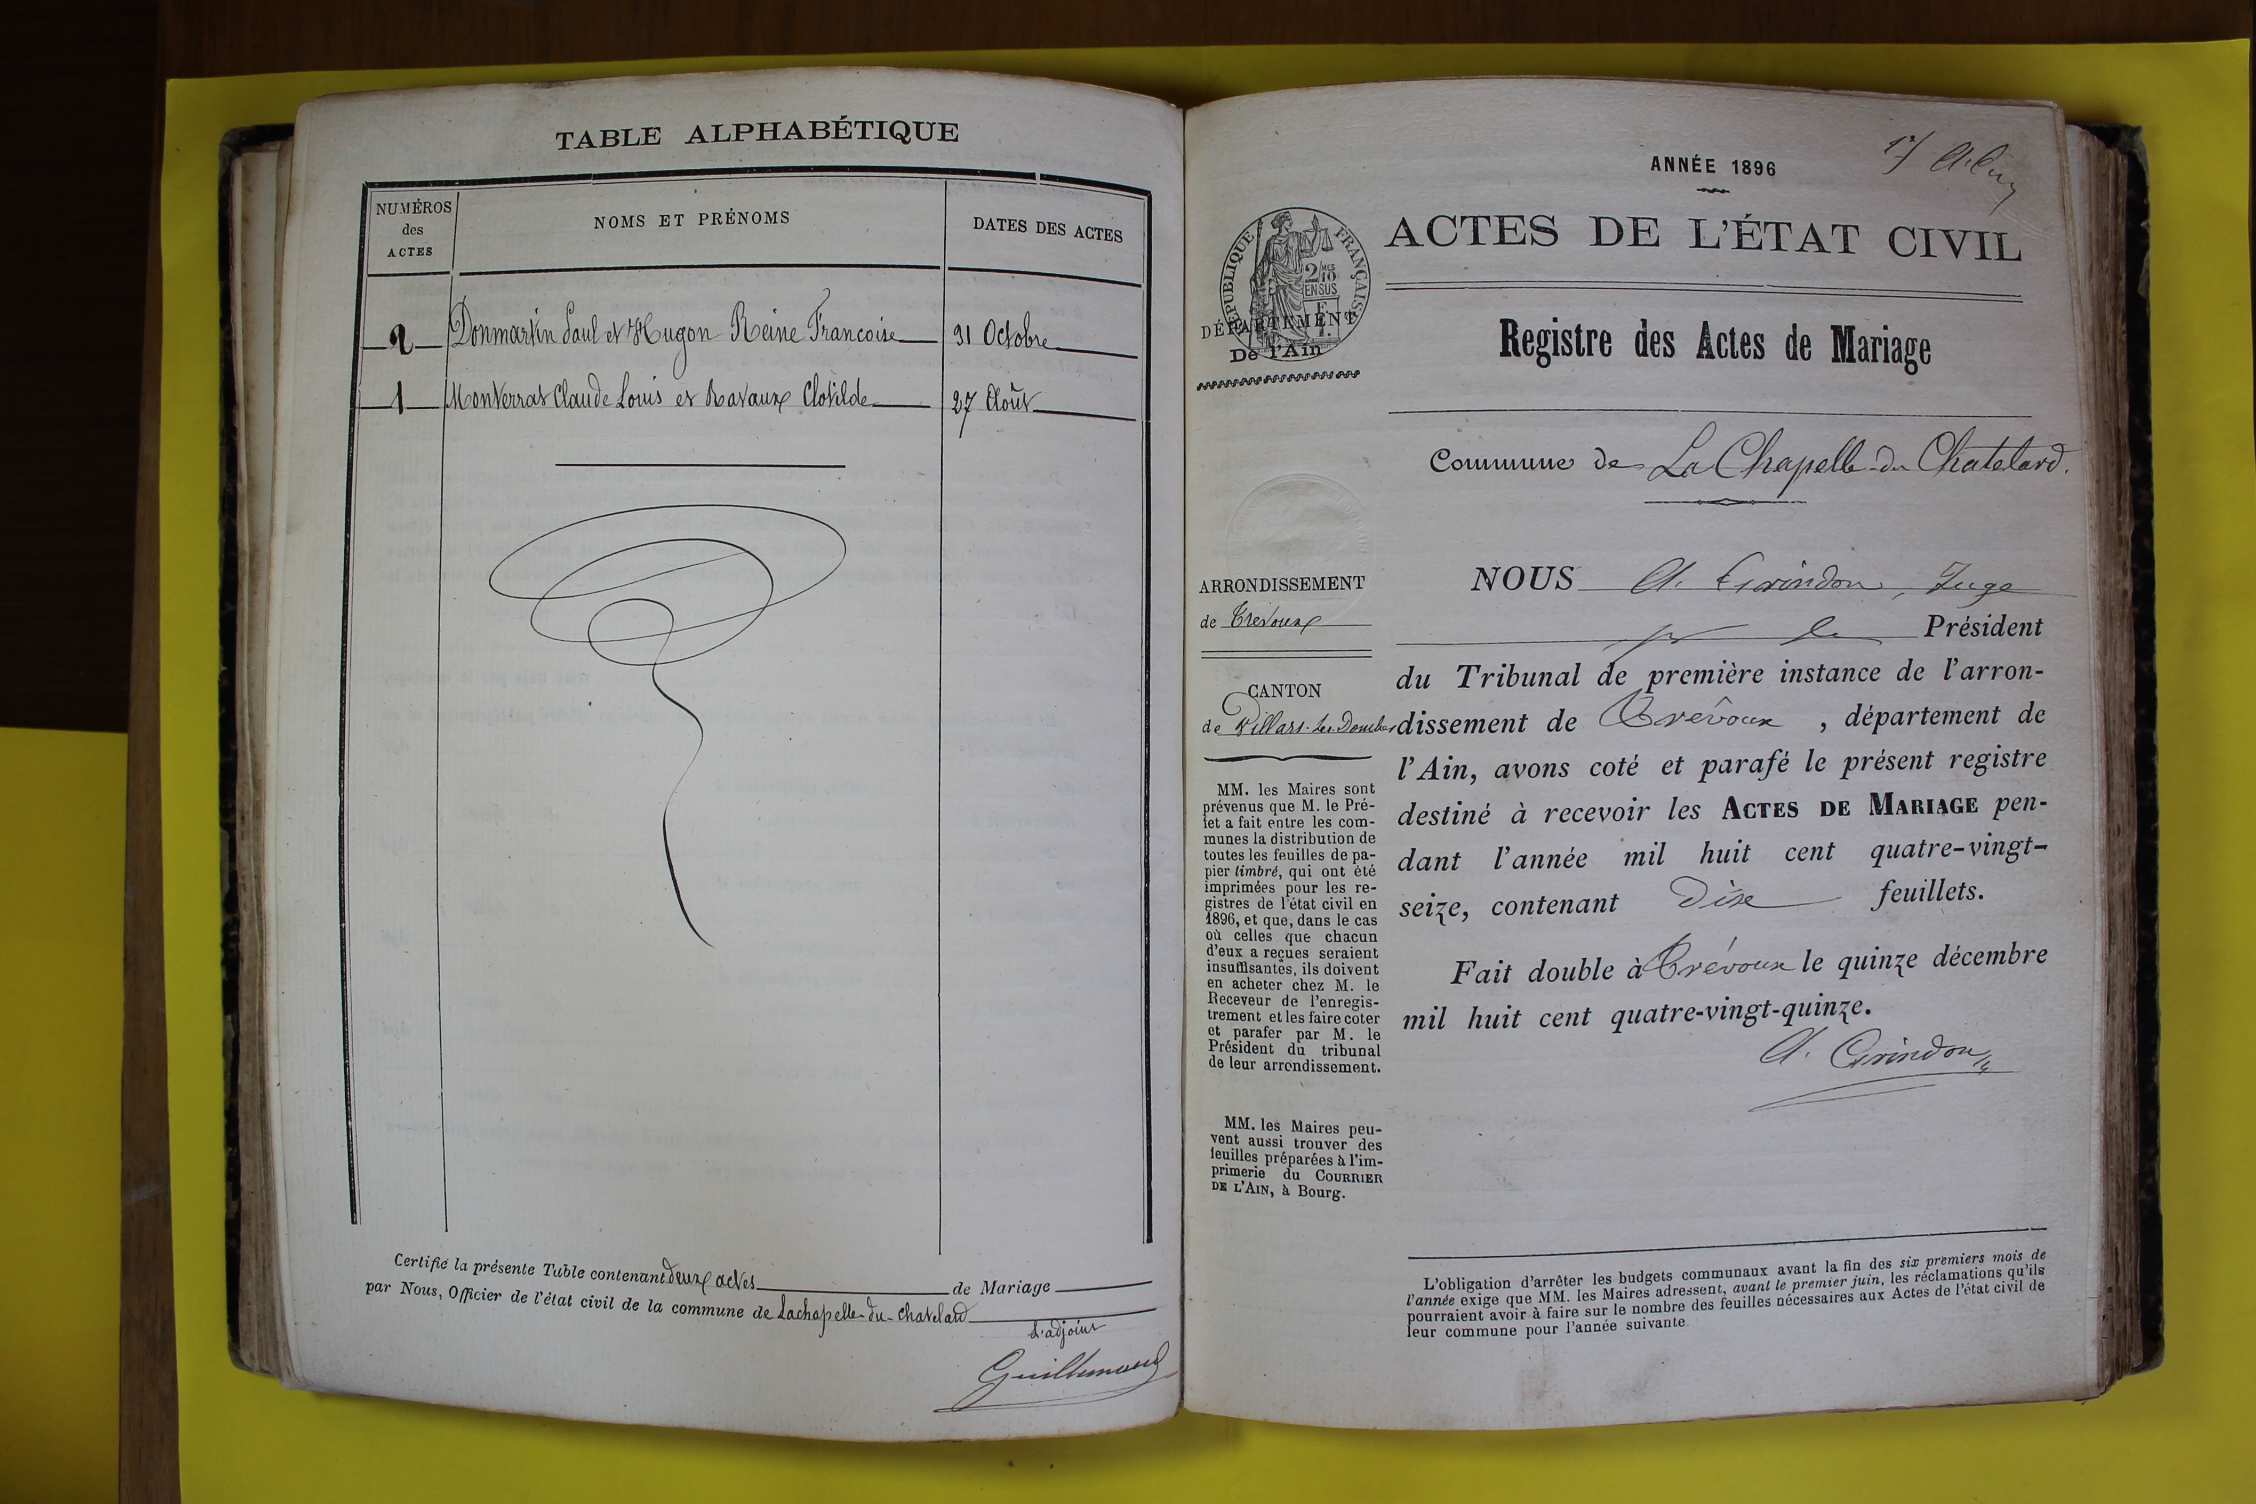 TABLE ALPHABÉTIQUE
NUMÉROS
des
ACTES
NOMS ET PRÉNOMS
DATES DES ACTES
2 Donmartin Paul et Hugon Reine Francoise 31 Octobre
1 Monterrat Claude Louis et Ravaux Clotilde 27 Août
Certifié la présente Table contenant deux actes de Mariage
par Nous, Officier de l'état civil de la commune de Lachapelle-du-Chatelard
L'adjoint
ANNÉE 1896
ACTES DE L'ÉTAT CIVIL
RÉPUBLIQUE FRANÇAISE
2/10
EN SUS
DÉPARTEMENT
De l'Ain
Registre des Actes de Mariage
Commune de La Chapelle-du Chatelard.
ARRONDISSEMENT
de Trévoux
CANTON
de Villars-les-Dombes
MM. les Maires sont
prévenus que M. le Pré-
fet a fait entre les com-
munes la distribution de
toutes les feuilles de pa-
pier timbré, qui ont été
imprimées pour les re-
gistres de l'état civil en
1896, et que, dans le cas
où celles que chacun
d'eux a reçues seraient
insuffisantes, ils doivent
en acheter chez M. le
Receveur de l'enregis-
trement et les faire coter
et parafer par M. le
Président du tribunal
de leur arrondissement.
MM. les Maires peu-
vent aussi trouver des
feuilles préparées à l'im-
primerie du COURRIER
DE L'AIN, à Bourg.
NOUS A. Grindon, Juge
pr le Président
du Tribunal de première instance de l'arron-
dissement de Trévoux, département de
l'Ain, avons coté et parafé le présent registre
destiné à recevoir les ACTES DE MARIAGE pen-
dant l'année mil huit cent quatre-vingt-
seize, contenant Dix feuillets.
Fait double à Trévoux le quinze décembre
mil huit cent quatre-vingt-quinze.
A. Grindon
L'obligation d'arrêter les budgets communaux avant la fin des six premiers mois de
l'année exige que MM. les Maires adressent, avant le premier juin, les réclamations qu'ils
pourraient avoir à faire sur le nombre des feuilles nécessaires aux Actes de l'état civil de
leur commune pour l'année suivante